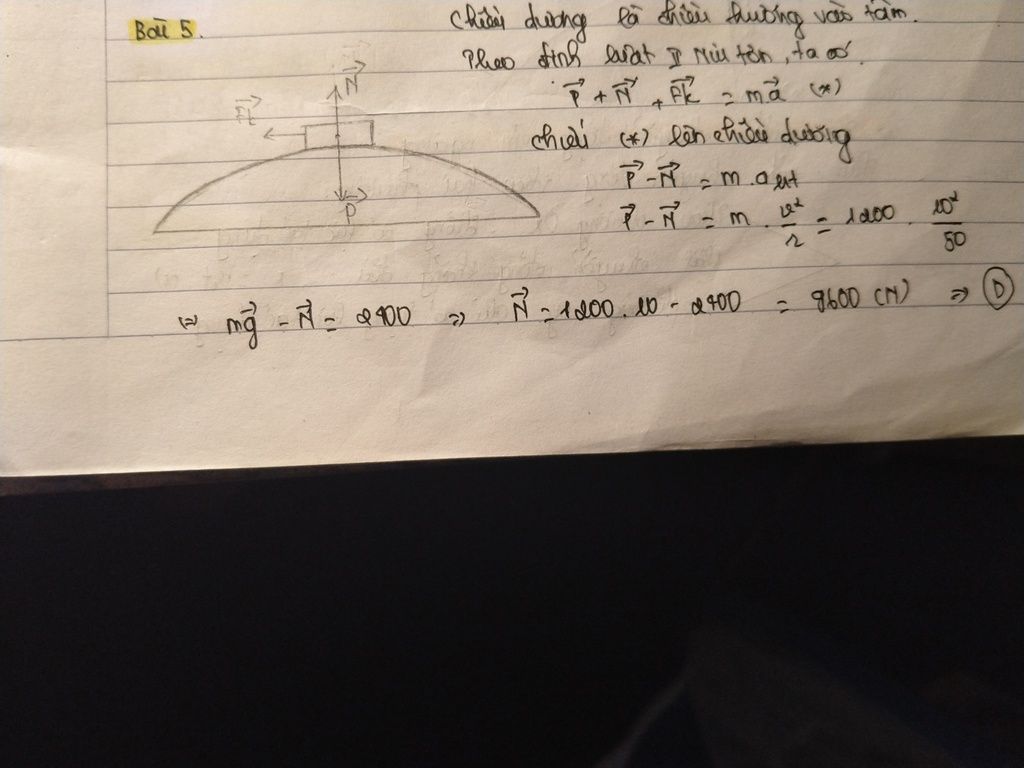 Bài 5.
Chiều dương là chiều hướng vào tâm.
Theo định luật II Niu tơn, ta có.
P⃗ + N⃗ + Fk⃗ = ma⃗ (*)
Chiếu (*) lên chiều dương
P⃗ - N⃗ = m . aht
P⃗ - N⃗ = m . v²/r = 1200 . 10²/50
N⃗
Fk⃗
P⃗
⇔ mg⃗ - N⃗ = 2400 ⇒ N⃗ = 1200 . 10 - 2400 = 9600 (N) ⇒ D